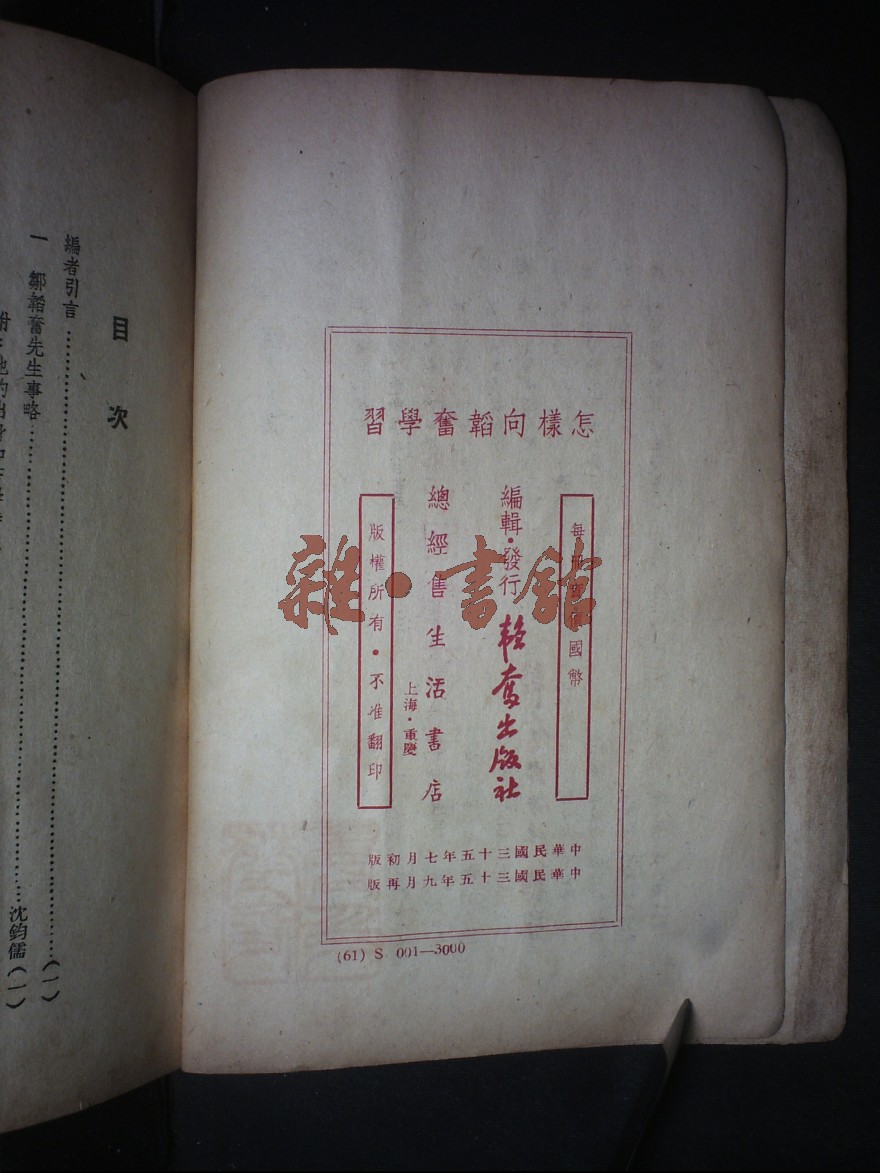 怎樣向韜奮學習
每冊實價國幣
編輯·發行 韜奮出版社
總經售 生活書店
上海·重慶
版權所有·不准翻印
中華民國三十五年七月初版
中華民國三十五年九月再版
(61) S 001—3000
雜·書館
目次
編者引言……(一)
一 鄒韜奮先生事略……沈鈞儒(一)